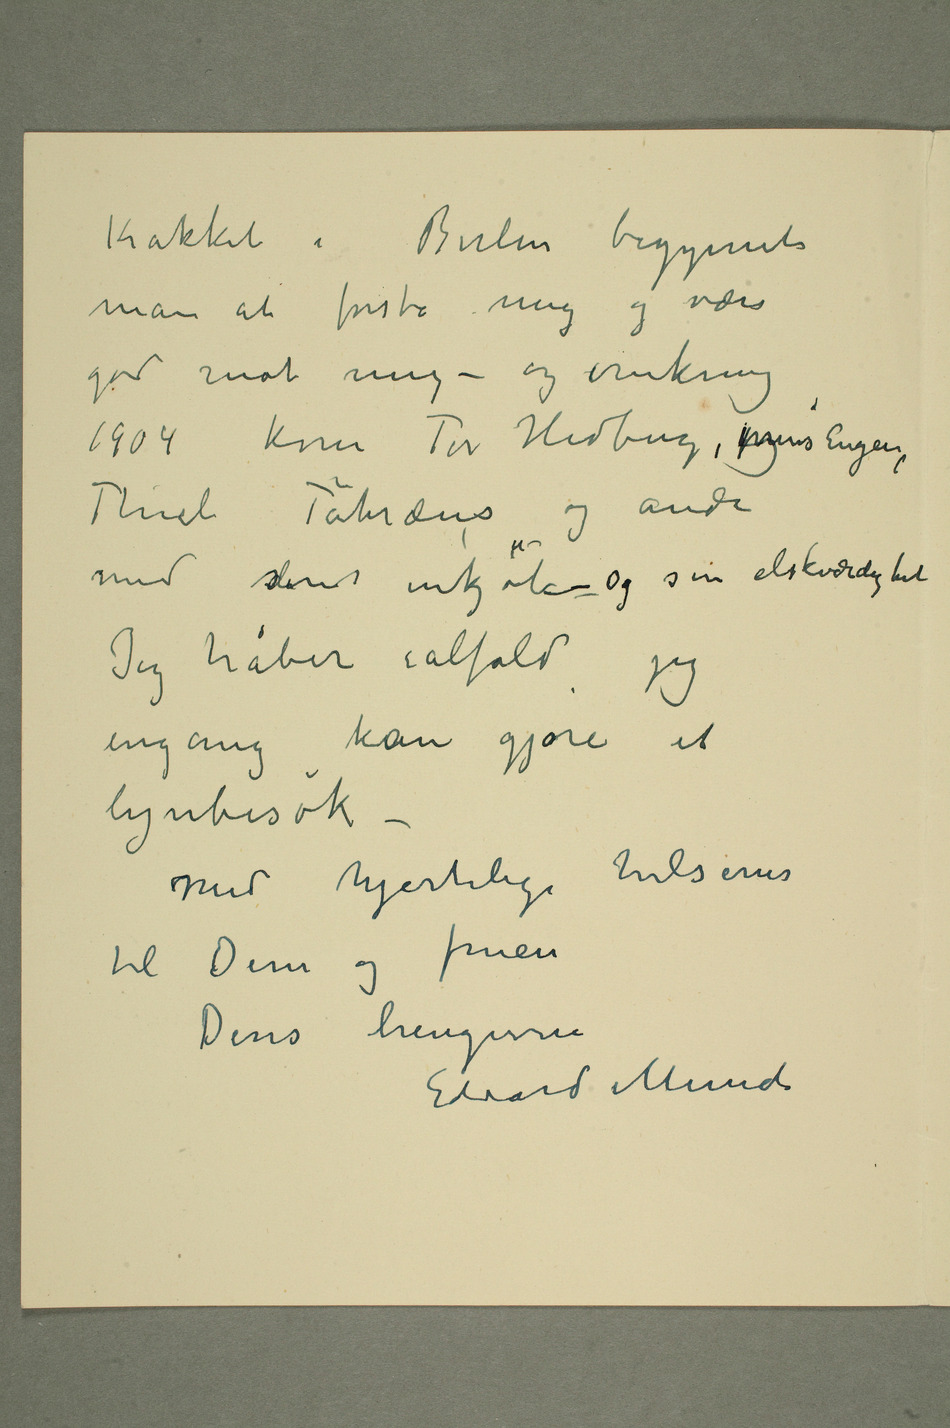 krakket i Berlin begynnte
man at forstå mig og være
god mot mig – og omkring
1904 kom Tor Hedberg, prins Eugen,
Thiel Tåhræus og andre
med sine inkjöp – og sin elskværdighet
Jeg håber ialfald jeg
engang kan gjøre et
lynbesök –
Med hjertelige hilsener
til Dem og fruen
Deres hengivne
Edvard Munch